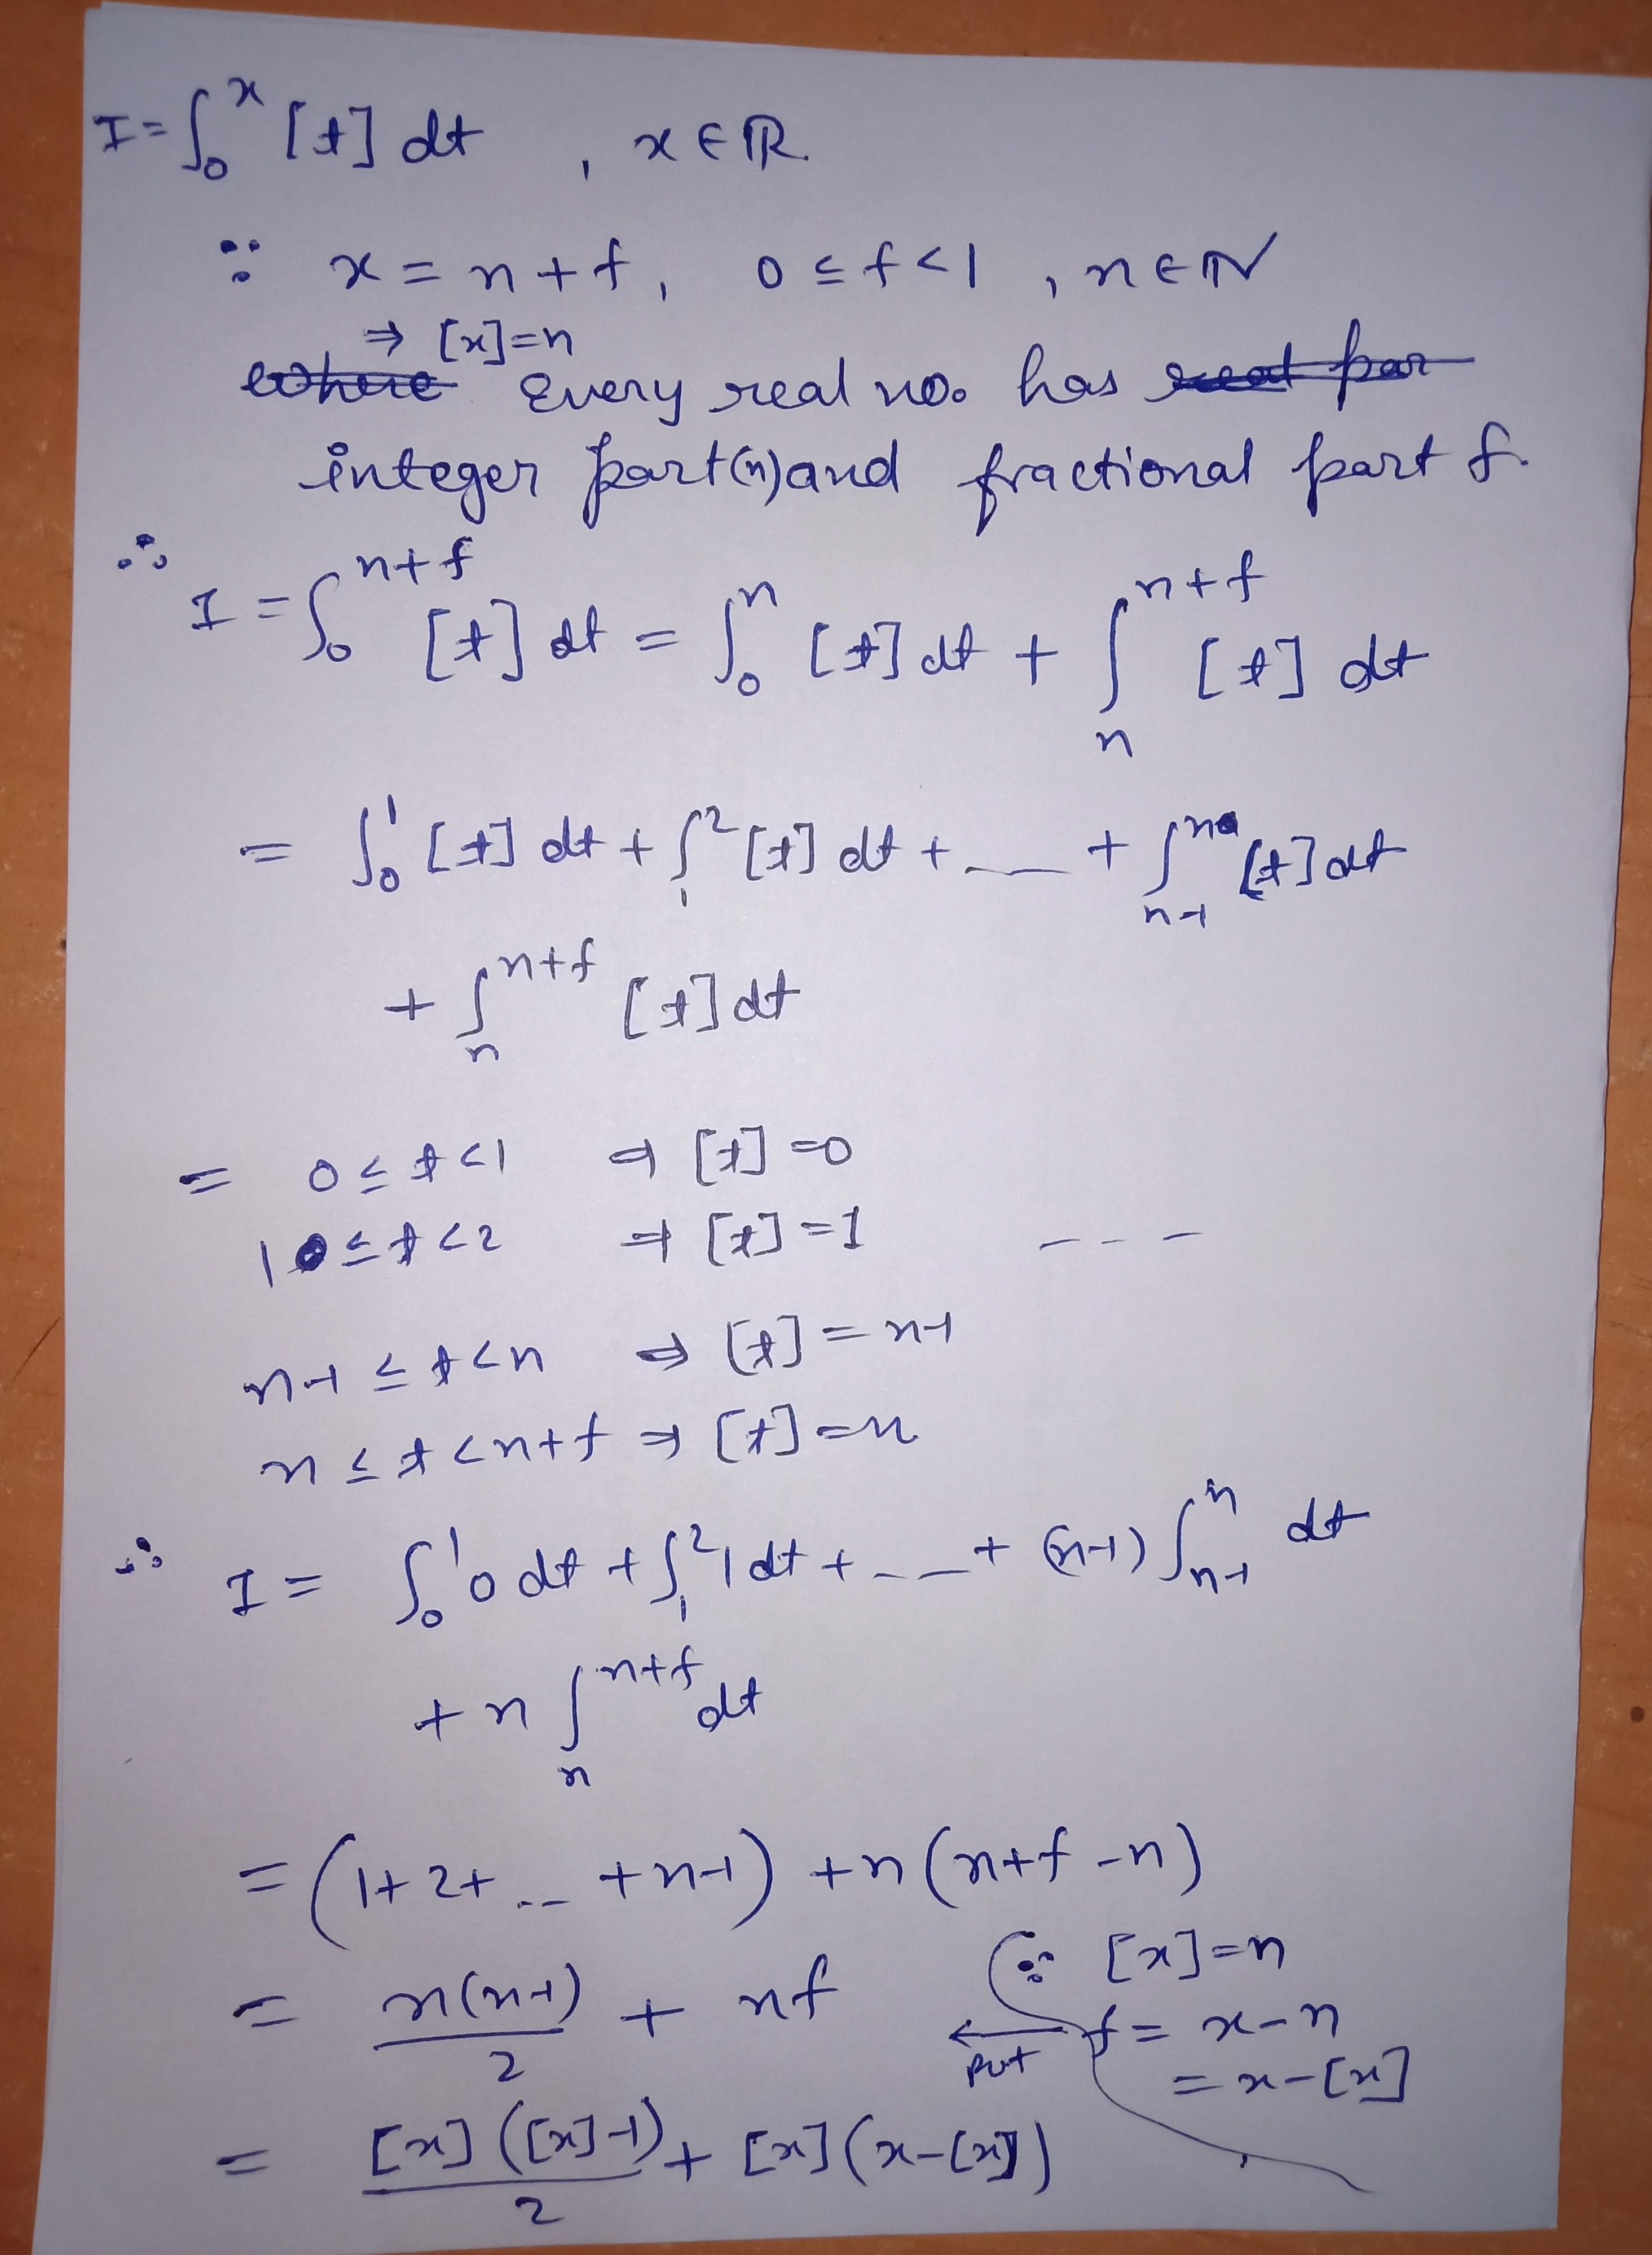 I = ∫₀ˣ [t] dt , x ∈ ℝ
∵ x = n + f, 0 ≤ f < 1 , n ∈ ℕ
⇒ [x] = n
Every real no. has
integer part (n) and fractional part f.
∴ I = ∫₀ⁿ⁺ᶠ [t] dt = ∫₀ⁿ [t] dt + ∫ₙⁿ⁺ᶠ [t] dt
= ∫₀¹ [t] dt + ∫₁² [t] dt + --- + ∫ₙ₋₁ⁿ [t] dt
+ ∫ₙⁿ⁺ᶠ [t] dt
= 0 ≤ t < 1 ⇒ [t] = 0
1 ≤ t < 2 ⇒ [t] = 1 ---
n-1 ≤ t < n ⇒ [t] = n-1
n ≤ t < n+f ⇒ [t] = n
∴ I = ∫₀¹ 0 dt + ∫₁² 1 dt + --- + (n-1) ∫ₙ₋₁ⁿ dt
+ n ∫ₙⁿ⁺ᶠ dt
= (1+2+ -- +n-1) + n (n+f-n)
= n(n-1)/2 + nf
(∵ [x] = n
← put f = x-n
= x-[x]
= [x]([x]-1)/2 + [x](x-[x])